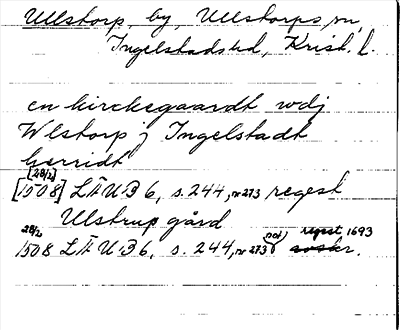 Ullstorp, by, Ullstorps sn,
Ingelstads hd, Krist. l.
en kirckegaardt wdj
Wlstorp j Ingelstadt
herridt
[28/2]
[1508] LÄUB 6, s. 244, nr 273 regest
Ulstrup gård
28/2 not) regest 1693
1508 LÄUB 6, s. 244, nr 273